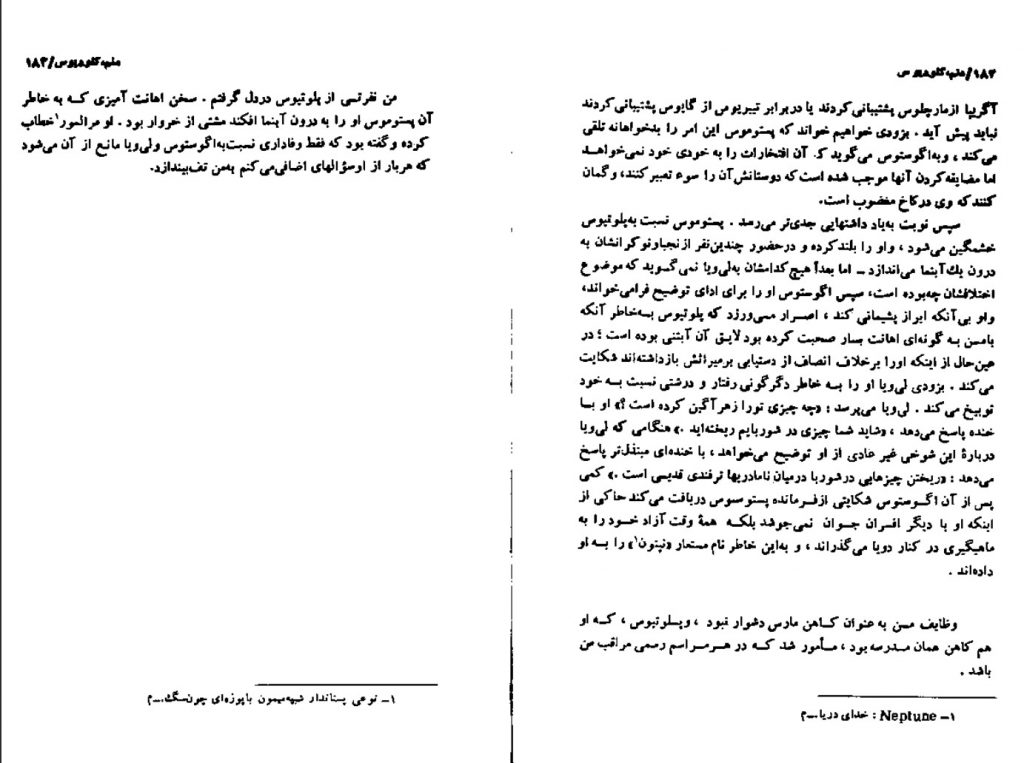 ۱۸۲/منم، کلودیوس
آگریپا ازمارچلوس پشتیبانی کردند یا در برابر تیبریوس از گایوس پشتیبانی کردند
نباید پیش آید . بزودی خواهیم خواند که پستوموس این امر را بدخواهانه تلقی
می‌کند ، وبه‌اگوستوس می‌گوید که آن افتخارات را به خودی خود نمی‌خواهد
اما مضایقه کردن آنها موجب شده است که دوستانش آن را سوء تعبیر کنند، و گمان
کنند که وی در کاخ مغضوب است.
سپس نوبت به‌یاد داشتهایی جدی‌تر می‌رسد . پستوموس نسبت به‌پلوتیوس
خشمگین می‌شود ، واو را بلند کرده و درحضور چندین‌نفر از نجبا و نوکرانشان به
درون یك آبنما می‌اندازد ـ اما بعداً هیچ کدامشان به‌لی‌ویا نمی گسوید که موضوع
اختلافشان چه‌بوده است، سپس اگوستوس او را برای ادای توضیح فرا می‌خواند،
واو بی‌آنکه ابراز پشیمانی کند ، اصرار می‌ورزد که پلوتیوس به‌خاطر آنکه
بامن به گونه‌ای اهانت بار صحبت کرده بود لایق آن آبتنی بوده است ؛ در
عین‌حال از اینکه اورا برخلاف انصاف از دستیابی برمیراثش بازداشته‌اند شکایت
می‌کند . بزودی لی‌ویا او را به خاطر دگرگونی رفتار و درشتی نسبت به خود
توبیخ می‌کند . لی‌ویا می‌پرسد : «چه چیزی تورا زهرآگین کرده است ؟» او با
خنده پاسخ می‌دهد ، «شاید شما چیزی در شوربایم ریخته‌اید .» هنگامی که لی‌ویا
دربارهٔ این شوخی غیر عادی از او توضیح می‌خواهد ، با خنده‌ای مبتذل‌تر پاسخ
می‌دهد : «ریختن چیزهایی در شوربا درمیان نامادریها ترفندی قدیمی است .» کمی
پس از آن اگوستوس شکایتی ازفرمانده پستوموس دریافت می‌کند حاکی از
اینکه او با دیگر افسران جوان نمی‌جوشد بلکه همهٔ وقت آزاد خود را به
ماهیگیری در کنار دریا می‌گذراند ، و به‌این خاطر نام مستعار «نپتون۱» را به او
داده‌اند .
وظایف من به عنوان کاهن مارس دشوار نبود ، وپلوتیوس ، که او
هم کاهن همان مدرسه بود ، مأمور شد که در هرمراسم رسمی مراقب من
باشد .
۱ـ Neptune : خدای دریا.ـم
منم، کلودیوس/۱۸۳
من نفرتی از پلوتیوس دردل گرفتم . سخن اهانت آمیزی که به خاطر
آن پستوموس او را به درون آبنما افکند مشتی از خروار بود . او مرا لمور۱خطاب
کرده وگفته بود که فقط وفاداری نسبت‌به‌اگوستوس ولی‌ویا مانع از آن می‌شود
که هربار از اوسؤالهای اضافی‌می‌کنم به‌من تف‌بیندازد.
۱ـ نوعی پستاندار شبیه‌میمون باپوزه‌ای چون‌سگ.ـم